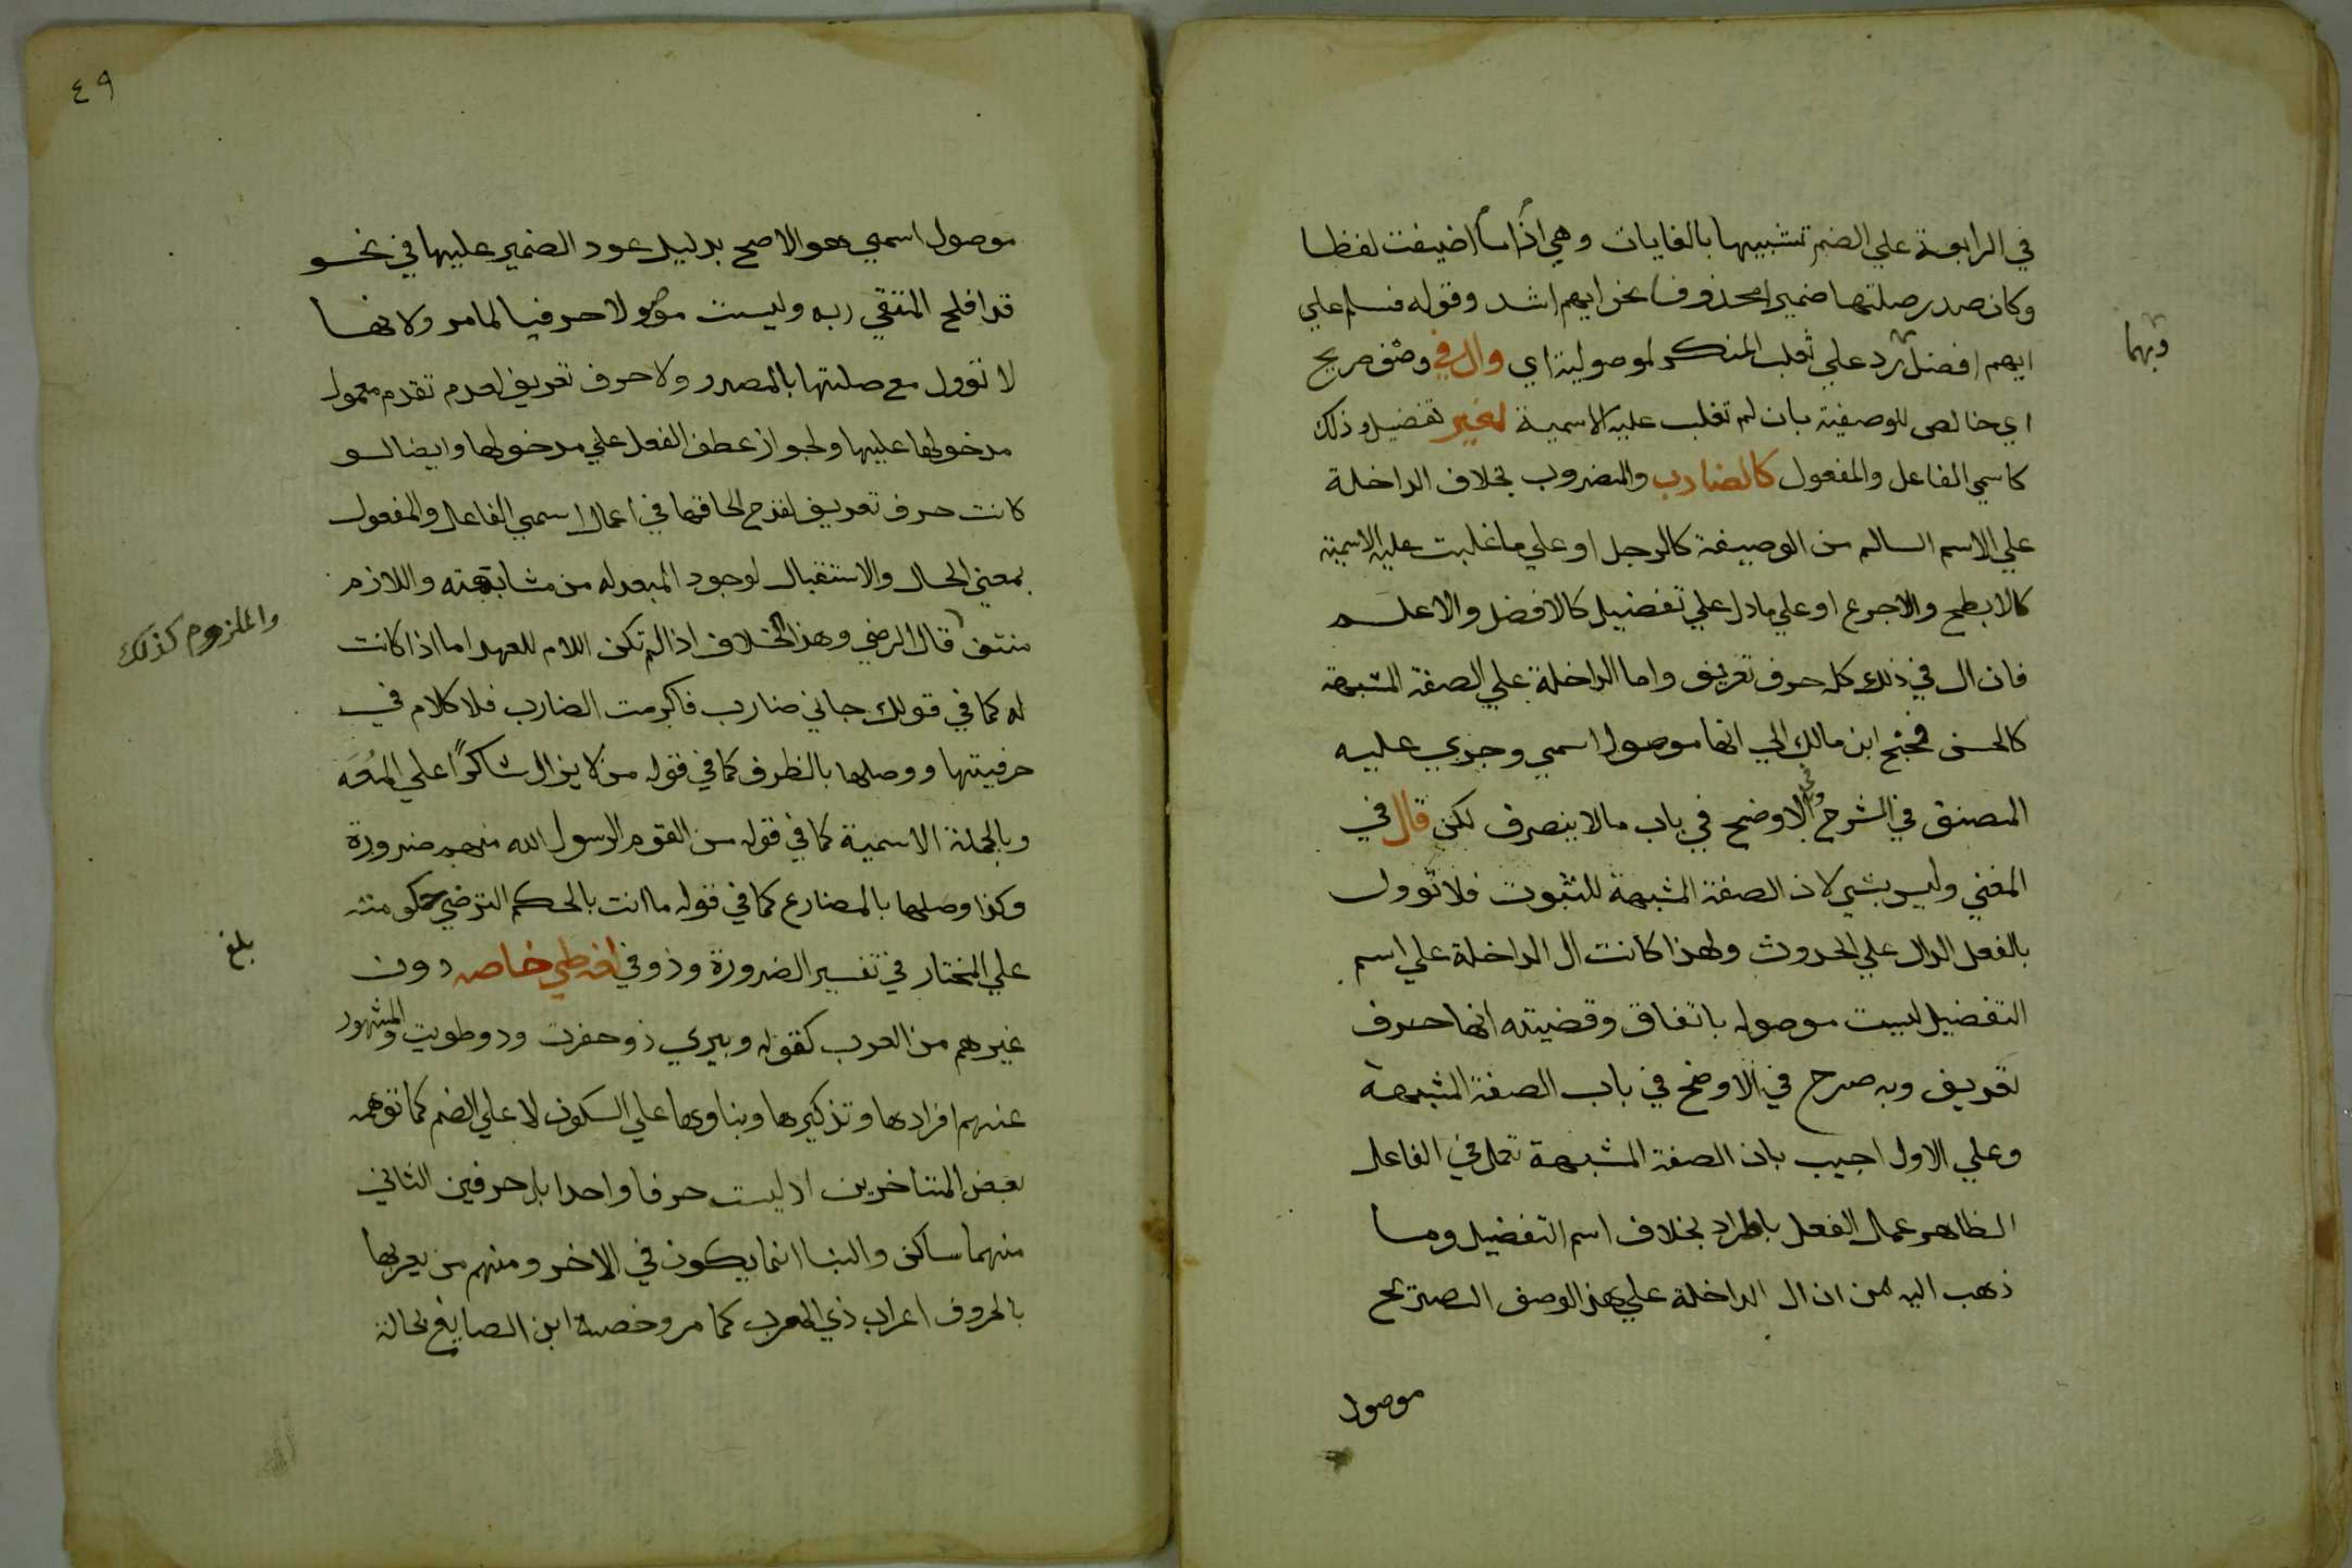 في الرابعة علي الضم تشبيها بالغايات وهي اذا ما اضيفت لفظا
وكان صدر صلتها ضميرا محذوفا نحو ايهم اشد وقوله فسلم علي
ايهم افضل رد علي ثعلب المنكر لموصولية اي وال في وصف صريح
وبهما
اي خالص للوصفية بان لم تغلب عليه الاسمية لغير تفضيل وذلك
كاسمي الفاعل والمفعول كالضارب والمضروب بخلاف الداخلة
علي الاسم السالم من الوصيفة كالرجل او علي ما غلبت عليه الاسمية
كالابطح والاجرع او علي ما دل علي تفضيل كالافضل والاعلم
فان ال في ذلك كله حرف تعريف واما الداخلة علي الصفة المشبهة
كالحسن فجنح ابن مالك الي انها موصول اسمي وجري عليه
المصنف في الشرح وفي الاوضح في باب مالا ينصرف لكن قال في
المغني وليس بشي لان الصفة المشبهة للثبوت فلا تؤول
بالفعل الدال علي الحدوث ولهذا كانت ال الداخلة علي اسم
التفضيل ليست موصوله باتفاق وقضيته انها حرف
تعريف وبه صرح في الاوضح في باب الصفة المشبهة
وعلي الاول اجيب بان الصفة المشبهة تعمل في الفاعل
الظاهر عمل الفعل باطراد بخلاف اسم التفضيل وما
ذهب اليه من ان ال الداخلة علي هذا الوصف الصريح
موصول
٤٩
موصول اسمي هو الاصح بدليل عود الضمير عليها في نحو
قد افلح المتقي ربه وليست موصولا حرفيا لما مر ولانها
لا تؤول مع صلتها بالمصدر ولا حرف تعريف لعدم تقدم معمول
مدخولها عليها ولجواز عطف الفعل علي مدخولها وايضا لو
كانت حرف تعريف لقدح لحاقها في اعمال اسمي الفاعل والمفعول
بمعني الحال والاستقبال لوجود المبعد له من مشابهته واللازم
منتف قال الرضي وهذا الخلاف اذا لم تكن اللام للعهد اما اذا كانت
والملزوم كذلك
له كما في قولك جاني ضارب فاكرمت الضارب فلا كلام في
حرفيتها ووصلها بالظرف كما في قوله من لا يزال شاكرًا علي المعَه
وبالجملة الاسمية كما في قوله من القوم الرسول الله منهم ضرورة
وكذا وصلها بالمضارع كما في قوله ما انت بالحكم الترضي حكومته
علي المختار في تفسير الضرورة وذو في لغة طي خاصه دون
بلغ
غيرهم من العرب كقوله وبيري ذو حفرت وذو طويت والمشهور
عنهم افرادها وتذكيرها وبناوها علي السكون لا علي الضم كما توهمه
بعض المتاخرين اذ ليست حرفا واحدا بل حرفين الثاني
منهما ساكن والبنا انما يكون في الاخر ومنهم من يعربها
بالحروف اعراب ذي المعرب كما مر وخصه ابن الصايغ بحالة